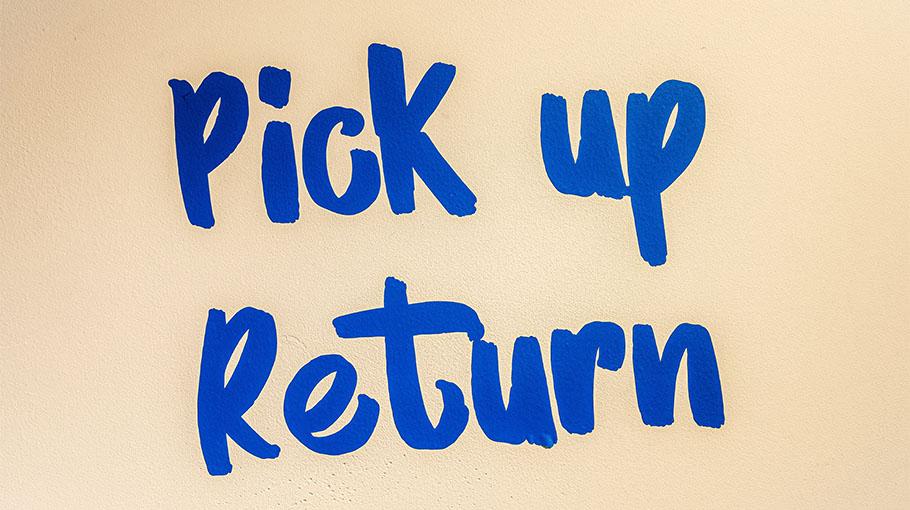 Pick up
Return